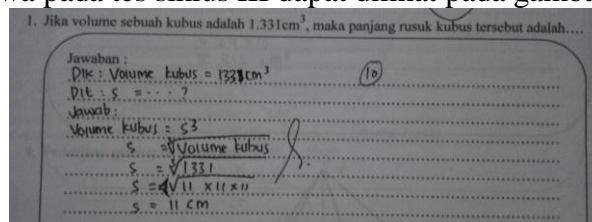 pada tes siklus III dapat dilihat pada
1. Jika volume sebuah kubus adalah 1.331cm³, maka panjang rusuk kubus tersebut adalah....
Jawaban :
Dik : Volume kubus = 1331 cm³
10
Dit : s = . . . ?
Jawab :
Volume kubus = s³
s = ∛Volume kubus
s = ∛1331
s = ∛11 x 11 x 11
s = 11 cm